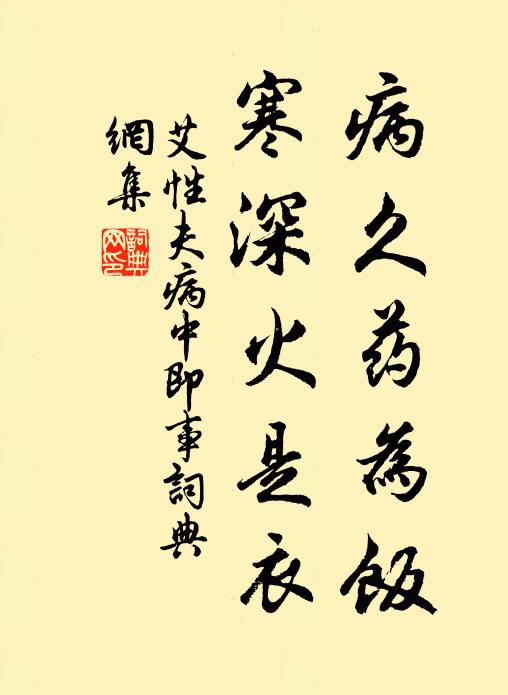 病久药為飯
寒深火是衣
艾性夫病中即事詞典
網集
詞典
网印